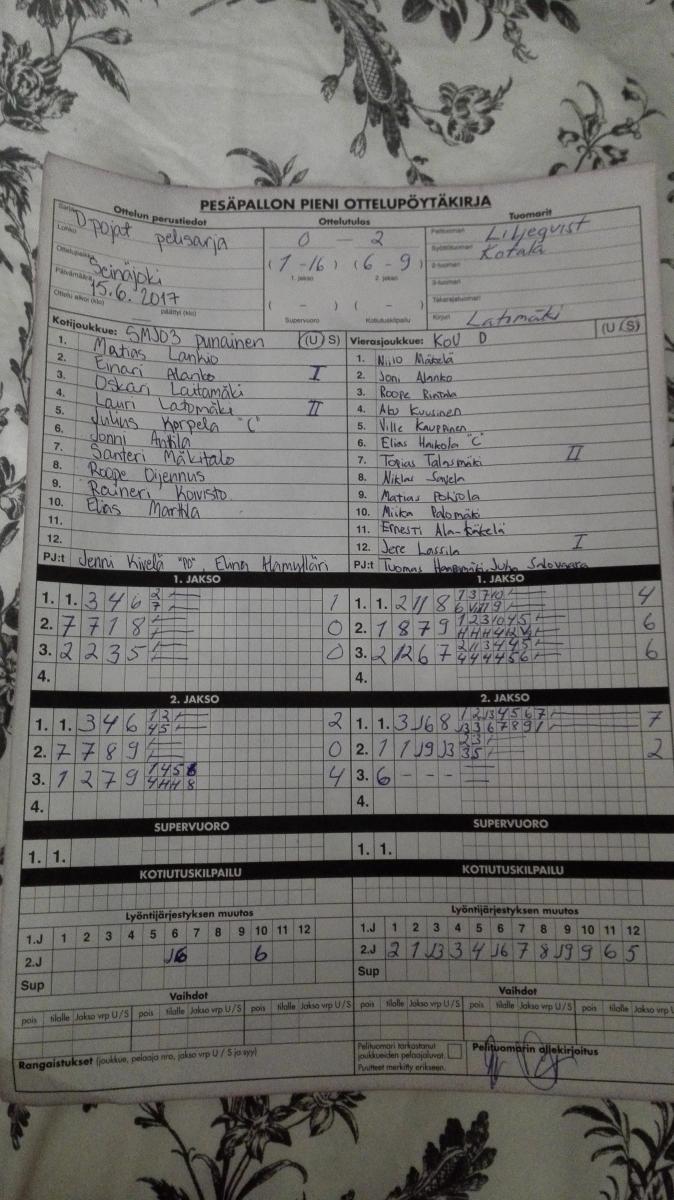 PESÄPALLON PIENI OTTELUPÖYTÄKIRJA
Ottelun perustiedot
Ottelutulos
Tuomarit
Sarja D-pojat pelisarja
Lohko
Ottelupaikka Seinäjoki
Päivämäärä 15.6. 2017
Ottelu alkoi (klo) päättyi (klo)
0 - 2
(1 - 16) (6 - 9)
1. jakso 2. jakso
( - ) ( - )
Supervuoro Kotiutuskilpailu
Pelituomari Liljeqvist
Syöttötuomari Kotala
2-tuomari
3-tuomari
Takarajatuomari
Kirjuri Latomäki
Kotijoukkue: SMJD3 punainen (U) S)
1. Matias Lankio
2. Einari Alanko I
3. Oskari Laitamäki
4. Lauri Latomäki II
5. Julius Korpela "C"
6. Jonni Anttila
7. Santeri Mäkitalo
8. Roope Oijennus
9. Raineri Koivisto
10. Elias Marttila
11.
12.
PJ:t Jenni Kivelä "PO", Elina Alamylläri
Vierasjoukkue: KoU D (U (S)
1. Niilo Mäkelä
2. Joni Alanko
3. Roope Rintala
4. Atu Kuusinen
5. Ville Kauppinen
6. Elias Haikola "C"
7. Topias Talasmäki II
8. Niklas Sayela
9. Matias Pohjola
10. Miika Palomäki
11. Ernesti Ala-Käkelä
12. Jere Lassila I
PJ:t Tuomas Juha Salovaara
1. JAKSO
1. 1. 3 4 6 2 7 1
2. 7 7 1 8 0
3. 2 2 3 5 0
4.
1. JAKSO
1. 1. 2 11 8 4
2. 1 8 7 9 6
3. 2 12 6 7 6
4.
2. JAKSO
1. 1. 3 4 6 2
2. 7 7 8 9 0
3. 1 2 7 9 4
4.
2. JAKSO
1. 1. 3 J6 8 7
2. 1 1 J9 J3 2
3. 6 - - -
4.
SUPERVUORO
1. 1.
SUPERVUORO
1. 1.
KOTIUTUSKILPAILU
KOTIUTUSKILPAILU
Lyöntijärjestyksen muutos
1.J 1 2 3 4 5 6 7 8 9 10 11 12
2.J J6 6
Sup
Lyöntijärjestyksen muutos
1.J 1 2 3 4 5 6 7 8 9 10 11 12
2.J 2 1 J3 3 4 J6 7 8 J9 9 6 5
Sup
Vaihdot
pois tilalle Jakso vrp U/S pois tilalle Jakso vrp U/S
Vaihdot
pois tilalle Jakso vrp U/S pois tilalle Jakso vrp U/S
Rangaistukset (joukkue, pelaaja nro, jakso vrp U / S ja syy)
Pelituomari tarkastanut
joukkueiden pelaajaluvat.
Puutteet merkitty erikseen.
Pelituomarin allekirjoitus